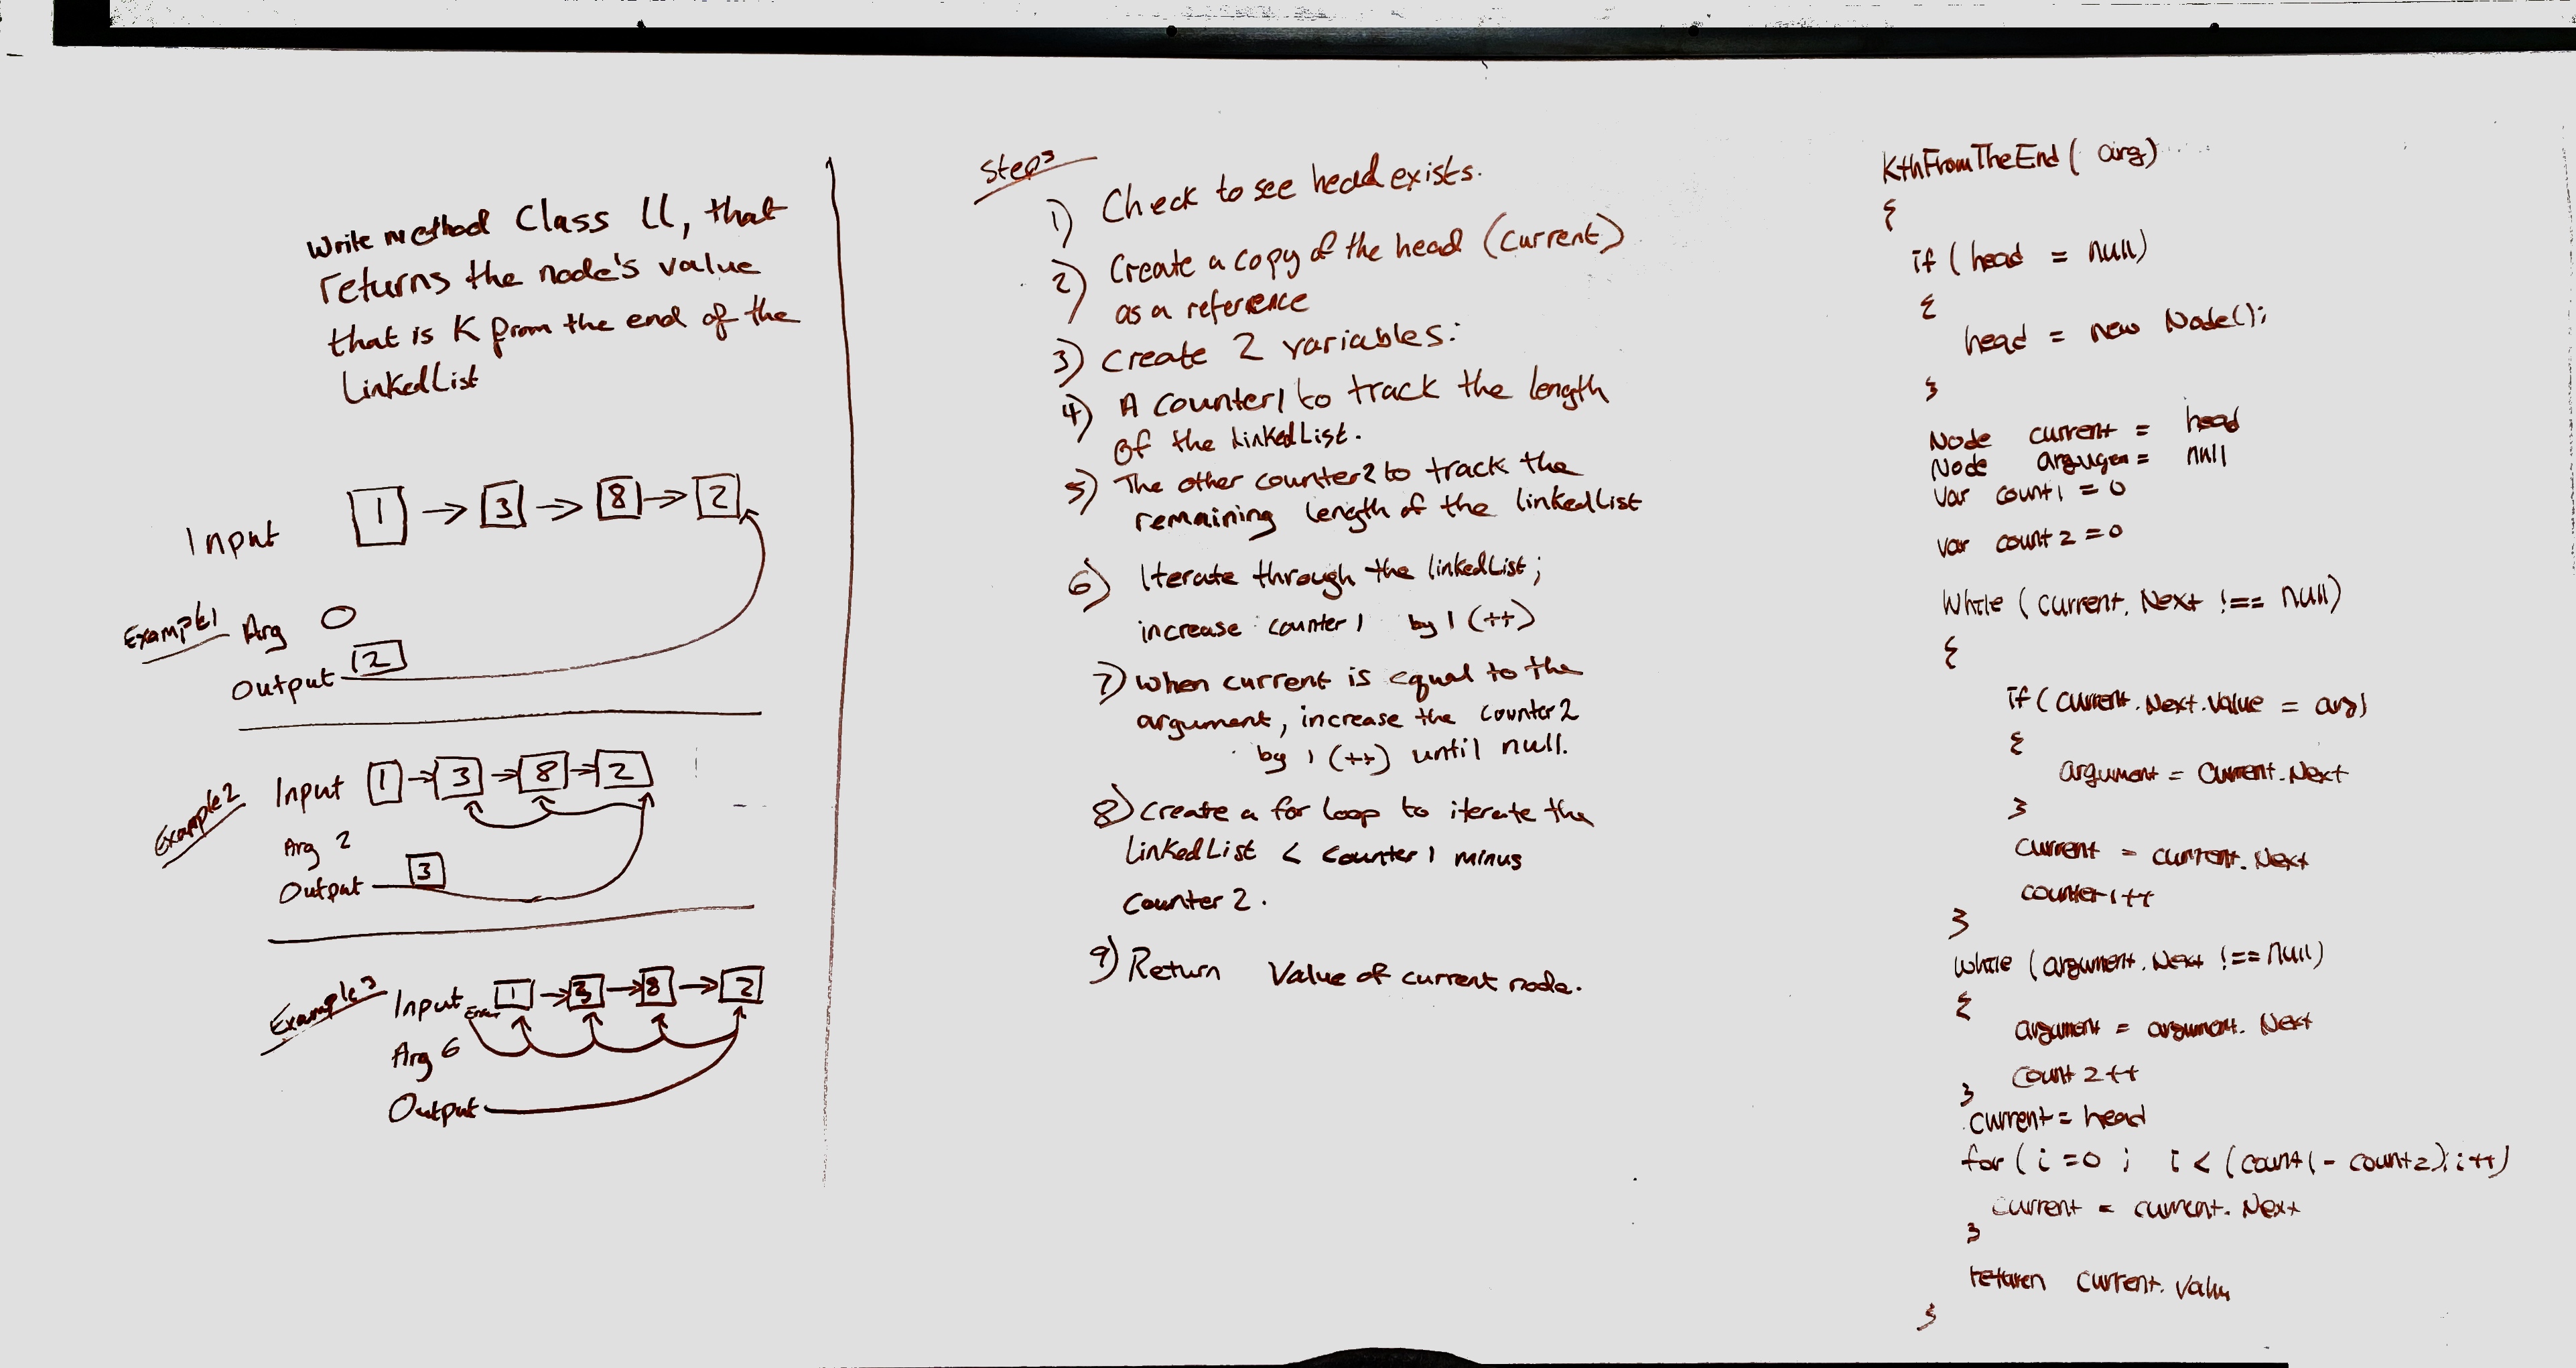 Write method Class LL, that
returns the node's value
that is K from the end of the
LinkedList
Input 1 → 3 → 8 → 2
Example1 Arg 0
Output 2
Example2 Input 1 → 3 → 8 → 2
Arg 2
Output 3
Example3 Input Error 1 → 3 → 8 → 2
Arg 6
Output
Steps
1) Check to see head exists.
2) Create a copy of the head (current)
as a reference
3) Create 2 variables:
4) A counter1 to track the length
of the linkedList.
5) The other counter2 to track the
remaining length of the linkedList
6) Iterate through the linkedList;
increase counter1 by 1 (++)
7) When current is equal to the
argument, increase the counter2
by 1 (++) until null.
8) Create a for loop to iterate the
LinkedList < counter1 minus
Counter 2.
9) Return Value of current node.
KthFromTheEnd( arg)
{
if (head = null)
{
head = new Node();
}
Node current = head
Node = null
var count1 = 0
var count2 = 0
While (current.Next !== null)
{
if (current.Next.Value = arg)
{
argument = current.Next
}
current = current.Next
counter1++
}
While (argument.Next !== null)
{
argument = argument.Next
count2++
}
current = head
for (i = 0 ; i < (count1 - count2); i++)
current = current.Next
}
return current.Value
}